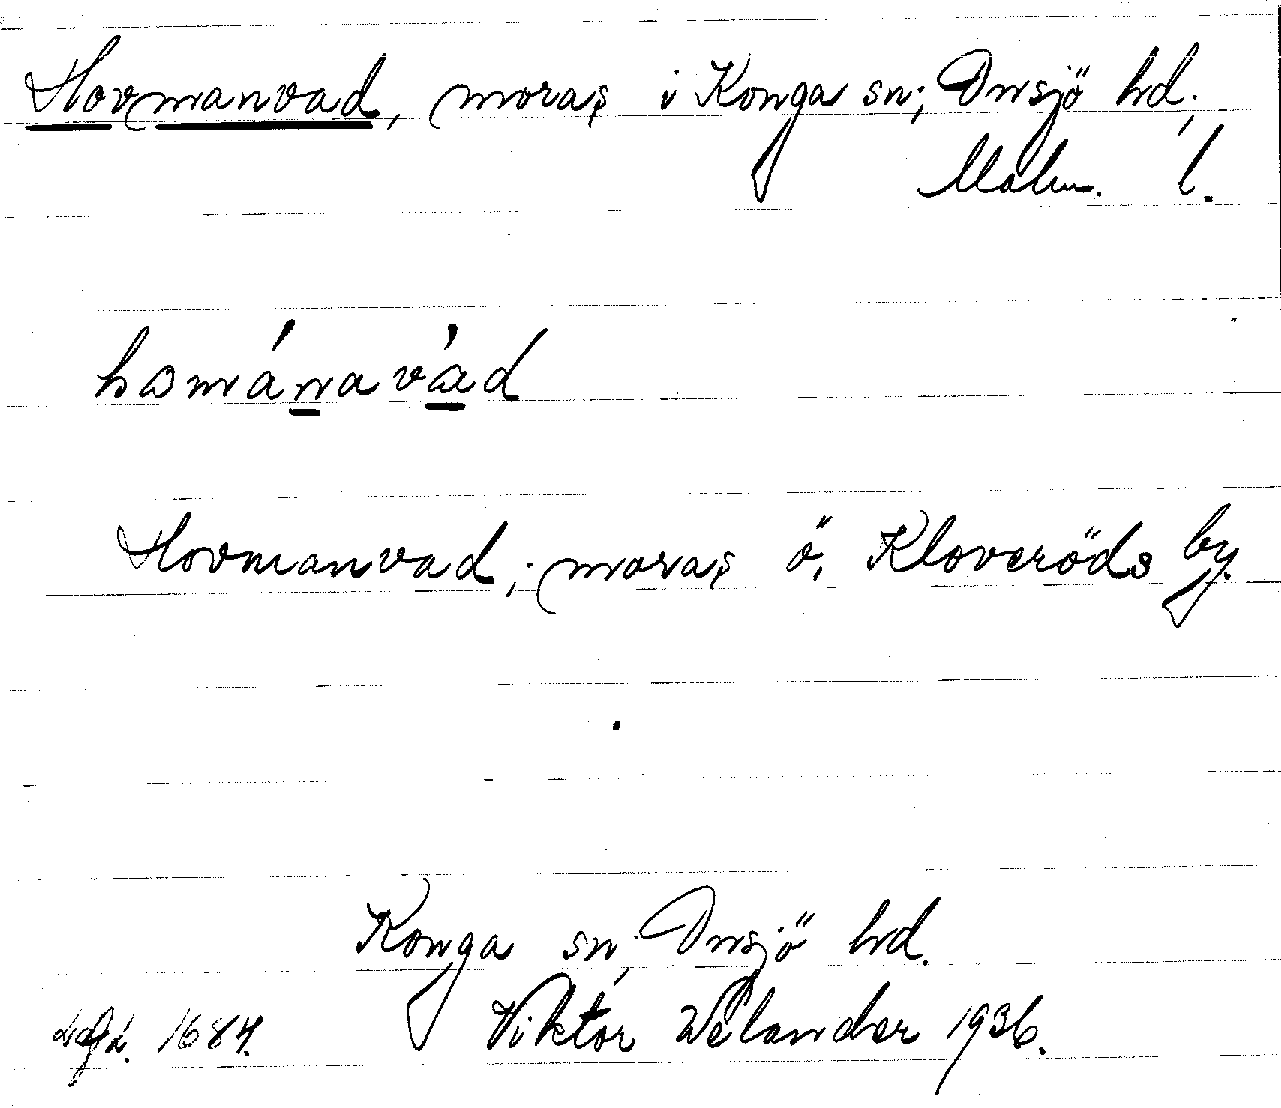 Hovmanvad, moras i Konga sn, Onsjö hd,
Malm. l.
hɷmánavad
Hovmanvad, moras ö. Kloveröds by.
Konga sn, Onsjö hd.
1684. Viktor Welander 1936.